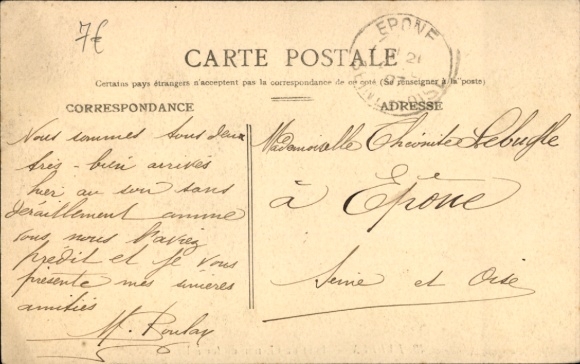 7€
CARTE POSTALE
EPONE
21
Certains pays étrangers n'acceptent pas la correspondance de ce côté (Se renseigner à la poste)
CORRESPONDANCE
ADRESSE
Nous sommes tous deux
très-bien arrivés
hier au soir sans
déraillement comme
vous nous l'aviez
prédit et je vous
présente mes sincères
amitiés
Mademoiselle Lebugle
à Epône
Seine et Oise